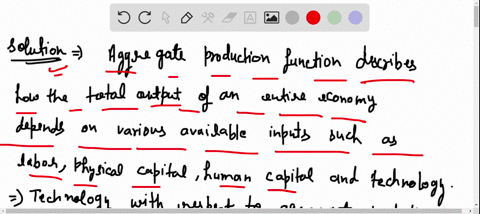 Solution ⇒ Aggregate production function describes
how the total output of an entire economy
depends on various available inputs such as
labor, physical capital, human capital and technology.
⇒ Technology with respect to